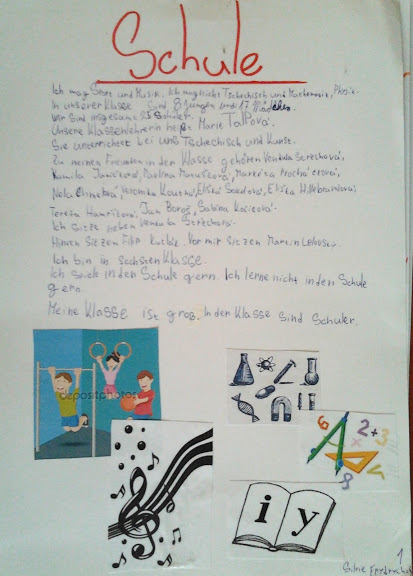 Schule
Ich mag Sport und Musik. Ich mag nicht Tschechisch und Mathematik, Physik.
In unserer Klasse sind 8 Jungen und 17 Mädchen.
Wir sind insgesamt 25 Schüler.
Unsere Klassenlehrerin heißt Marie Talpová.
Sie unterrichtet bei uns Tschechisch und Kunst.
Zu meinen Freunden in der Klasse gehören Vendula Šerechová,
Kamila Janíčková, Pavlína Matušková, Markéta
Nela Veronika Koutná, Eliška Eliška
Tereza Jan Boroš, Sabina
Ich sitze neben Vendula Šerechová.
Hinten sitzen Filip Vor mir sitzen Martin
Ich bin in sechsten Klasse.
Ich spiele in den Schule gern. Ich lerne nicht in den Schule
gern.
Meine Klasse ist groß. In der Klasse sind Schüler.
depositphotos
6 2+3
x
4
8
i y
1